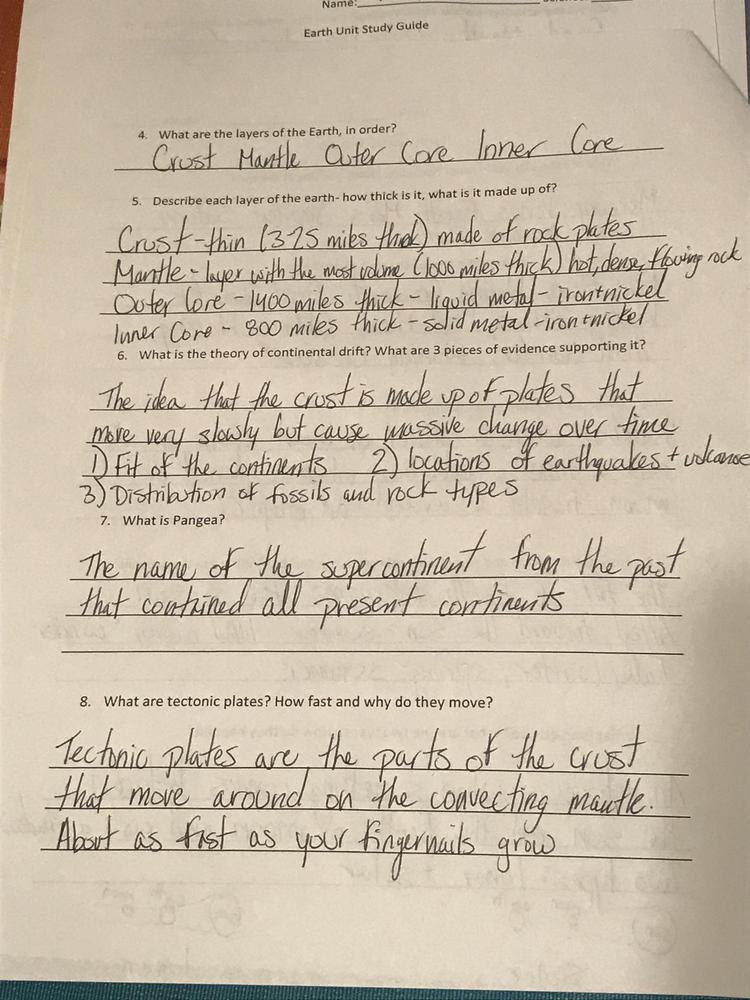 Name:
Earth Unit Study Guide
4. What are the layers of the Earth, in order?
Crust Mantle Outer Core Inner Core
5. Describe each layer of the earth- how thick is it, what is it made up of?
Crust - thin (3-25 miles thick) made of rock plates
Mantle - layer with the most volume (1000 miles thick) hot, dense, flowing rock
Outer Core - 1400 miles thick - liquid metal - iron+nickel
Inner Core - 800 miles thick - solid metal - iron+nickel
6. What is the theory of continental drift? What are 3 pieces of evidence supporting it?
The idea that the crust is made up of plates that
move very slowly but cause massive change over time
1) Fit of the continents 2) locations of earthquakes + volcanoe
3) Distribution of fossils and rock types
7. What is Pangea?
The name of the supercontinent from the past
that contained all present continents
8. What are tectonic plates? How fast and why do they move?
Tectonic plates are the parts of the crust
that move around on the convecting mantle.
About as fast as your fingernails grow